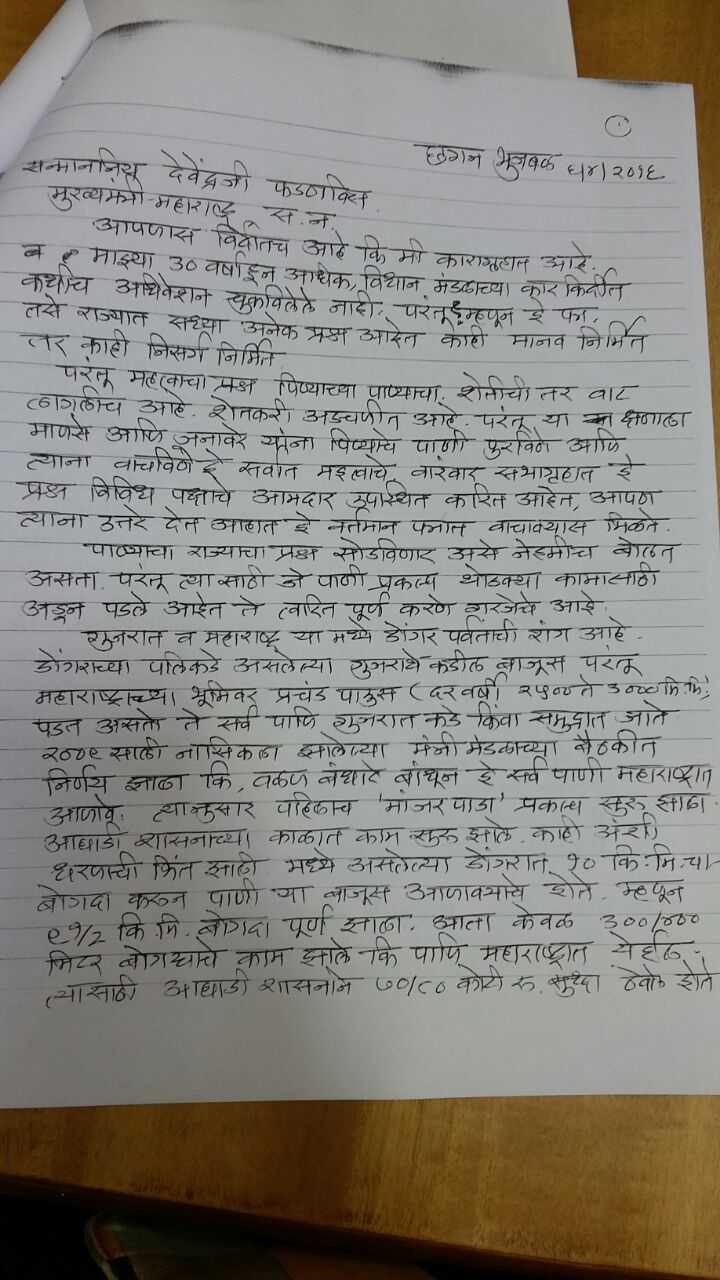 १
छगन भुजबळ ६/४/२०१६
सन्माननिय देवेंद्रजी फडणविस
मुख्यमंत्री महाराष्ट्र स.न.
आपणास विदीतच आहे कि मी कारागृहात आहे.
व माझ्या ३० वर्षाहून अधिक, विधान मंडळाच्या कारकिर्दीत
कधीच अधिवेशन चुकविलेले नाही. परंतू म्हणून हे
तसे राज्यात सध्या अनेक प्रश्न आहेत काही मानव निर्मित
तर काही निसर्ग निर्मित
परंतू महत्वाचा प्रश्न पिण्याच्या पाण्याचा. शेतीची तर वाट
लागलीच आहे. शेतकरी अडचणीत आहे. परंतू या क्षणाला
माणसे आणि जनावरे यांना पिण्याचे पाणी पुरविणे आणि
त्याना वाचविणे हे सर्वात महत्वाचे, वारंवार सभागृहात हे
प्रश्न विविध पक्षाचे आमदार उपस्थित करित आहेत, आपण
त्याना उत्तरे देत आहात हे वर्तमान पत्रात वाचावयास मिळते.
पाण्याचा राज्याचा प्रश्न सोडविणार असे नेहमीच बोलत
असता. परंतू त्यासाठी जे पाणी प्रकल्प थोडक्या कामासाठी
अडून पडले आहेत ते त्वरित पूर्ण करणे गरजेचे आहे.
गुजरात व महाराष्ट्र या मध्ये डोंगर पर्वतांची रांग आहे.
डोंगराच्या पलिकडे असलेल्या गुजराथे कडील बाजूस परंतू
महाराष्ट्राच्या भूमिवर प्रचंड पाऊस (दरवर्षी २५०० ते ३००० मि.मि.)
पडत असतो ते सर्व पाणि गुजरात कडे किंवा समुद्रात जाते
२००९ साली नासिकला झालेल्या मंत्री मंडळाच्या बैठकीत
निर्णय झाला कि, वळण बंधारे बांधून हे सर्व पाणी महाराष्ट्रात
आणावे. त्यानुसार पहिलाच 'मांजरपाडा' प्रकल्प सुरू झाला.
आघाडी शासनाच्या काळात काम सुरू झाले. काही अंशी
धरणाची भिंत झाली मध्ये असलेल्या डोंगरात १० कि.मि.चा
बोगदा करून पाणी या बाजूस आणावयाचे होते. म्हणून
९१/२ कि.मि. बोगदा पूर्ण झाला. आता केवळ ३००/४००
मिटर बोगद्याचे काम झाले कि पाणि महाराष्ट्रात येईल.
त्यासाठी आघाडी शासनाने ७०/८० कोटी रु. सुध्दा ठेवले होते